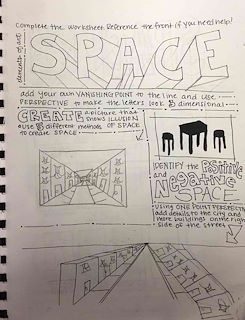 Complete the worksheet. Reference the front if you need help!
elements of art
SPACE
add your own VANISHING POINT to the line and use
PERSPECTIVE to make the letters look 3 dimensional
CREATE a picture that
shows ILLUSION
use 3 different methods of SPACE
to create SPACE
IDENTIFY the POSITIVE
and
NEGATIVE
SPACE
Using ONE POINT PERSPECTIVE
add details to the city and
more buildings on the right
side of the street